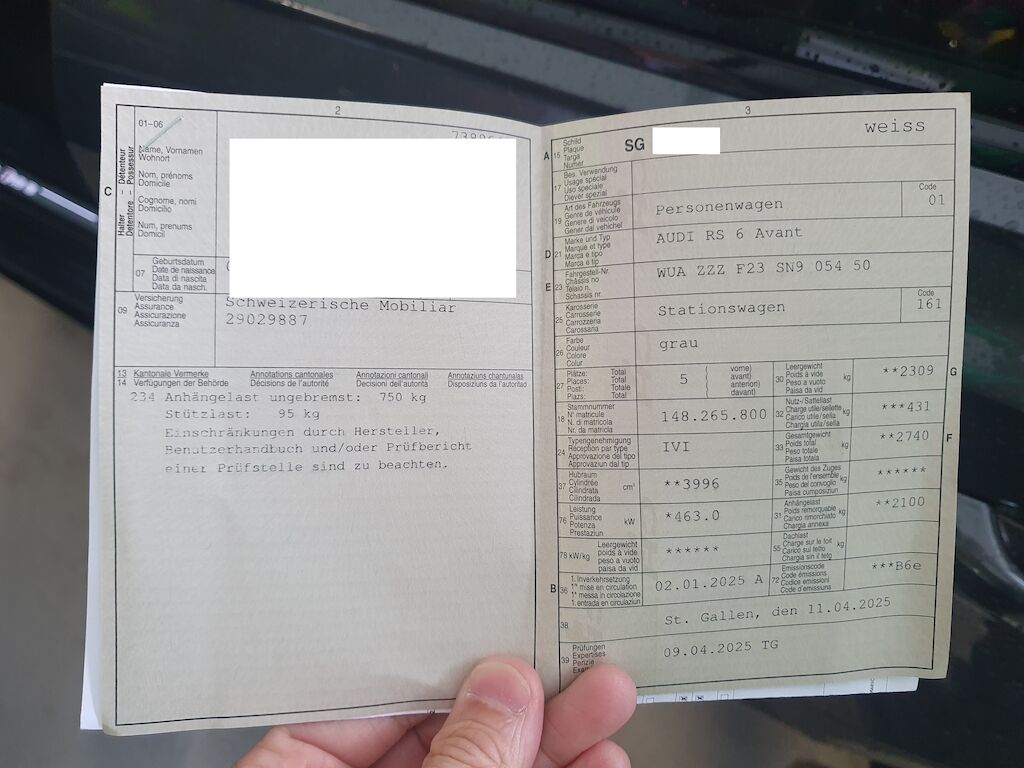 2
01-06
Name, Vornamen
Wohnort
Nom, prénoms
Domicile
Cognome, nomi
Domicilio
Num, prenums
Domicil
C
Halter - Détenteur
Detentore - Possessur
07
Geburtsdatum
Date de naissance
Data di nascita
Data da nasch.
09
Versicherung
Assurance
Assicurazione
Assicuranza
Schweizerische Mobiliar
29029887
13 Kantonale Vermerke Annotations cantonales Annotazioni cantonali Annotaziuns chantunalas
14 Verfügungen der Behörde Décisions de l'autorité Decisioni dell'autorità Disposiziuns da l'autoritad
234 Anhängelast ungebremst: 750 kg
Stützlast: 95 kg
Einschränkungen durch Hersteller,
Benutzerhandbuch und/oder Prüfbericht
einer Prüfstelle sind zu beachten.
3
A 15
Schild
Plaque
Targa
Numer
SG
weiss
17
Bes. Verwendung
Usage spécial
Uso speciale
Diever spezial
19
Art des Fahrzeugs
Genre de véhicule
Genere di veicolo
Gener dal vehichel
Personenwagen
Code
01
D 21
Marke und Typ
Marque et type
Marca e tipo
Marca e tip
AUDI RS 6 Avant
E 23
Fahrgestell-Nr.
Châssis no
Telaio n.
Schassis nr.
WUA ZZZ F23 SN9 054 50
25
Karosserie
Carrosserie
Carrozzeria
Carossaria
Stationswagen
Code
161
26
Farbe
Couleur
Colore
Colur
grau
27
Plätze: Total
Places: Total
Posti: Totale
Plazs: Total
5
vorne)
avant)
anteriori)
davant)
30
Leergewicht
Poids à vide
Peso a vuoto
Paisa da vid
kg
**2309
G
18
Stammnummer
N° matricule
N. di matricola
Nr. da matricla
148.265.800
32
Nutz-/Sattellast
Charge utile/sellette
Carico utile/sella
Chargia utila/sella
kg
***431
24
Typengenehmigung
Réception par type
Approvazione del tipo
Approvaziun dal tip
IVI
33
Gesamtgewicht
Poids total
Peso totale
Paisa totala
kg
**2740
F
37
Hubraum
Cylindrée
Cilindrata
Cilindrada
cm³
**3996
35
Gewicht des Zuges
Poids de l'ensemble
Peso del convoglio
Paisa cumposiziun
kg
******
76
Leistung
Puissance
Potenza
Prestaziun
kW
*463.0
31
Anhängelast
Poids remorquable
Carico rimorchiato
Chargia annexa
kg
**2100
78 kW/kg
Leergewicht
poids à vide
peso a vuoto
paisa da vid
******
55
Dachlast
Charge sur le toit
Carico sul tetto
Chargia sin il tetg
kg
B 36
1. Inverkehrsetzung
1re mise en circulation
1a messa in circolazione
1. entrada en circulaziun
02.01.2025 A
72
Emissionscode
Code émissions
Codice emissioni
Code d'emissiuns
***B6e
38
St. Gallen, den 11.04.2025
39
Prüfungen
Expertises
Perizie
09.04.2025 TG